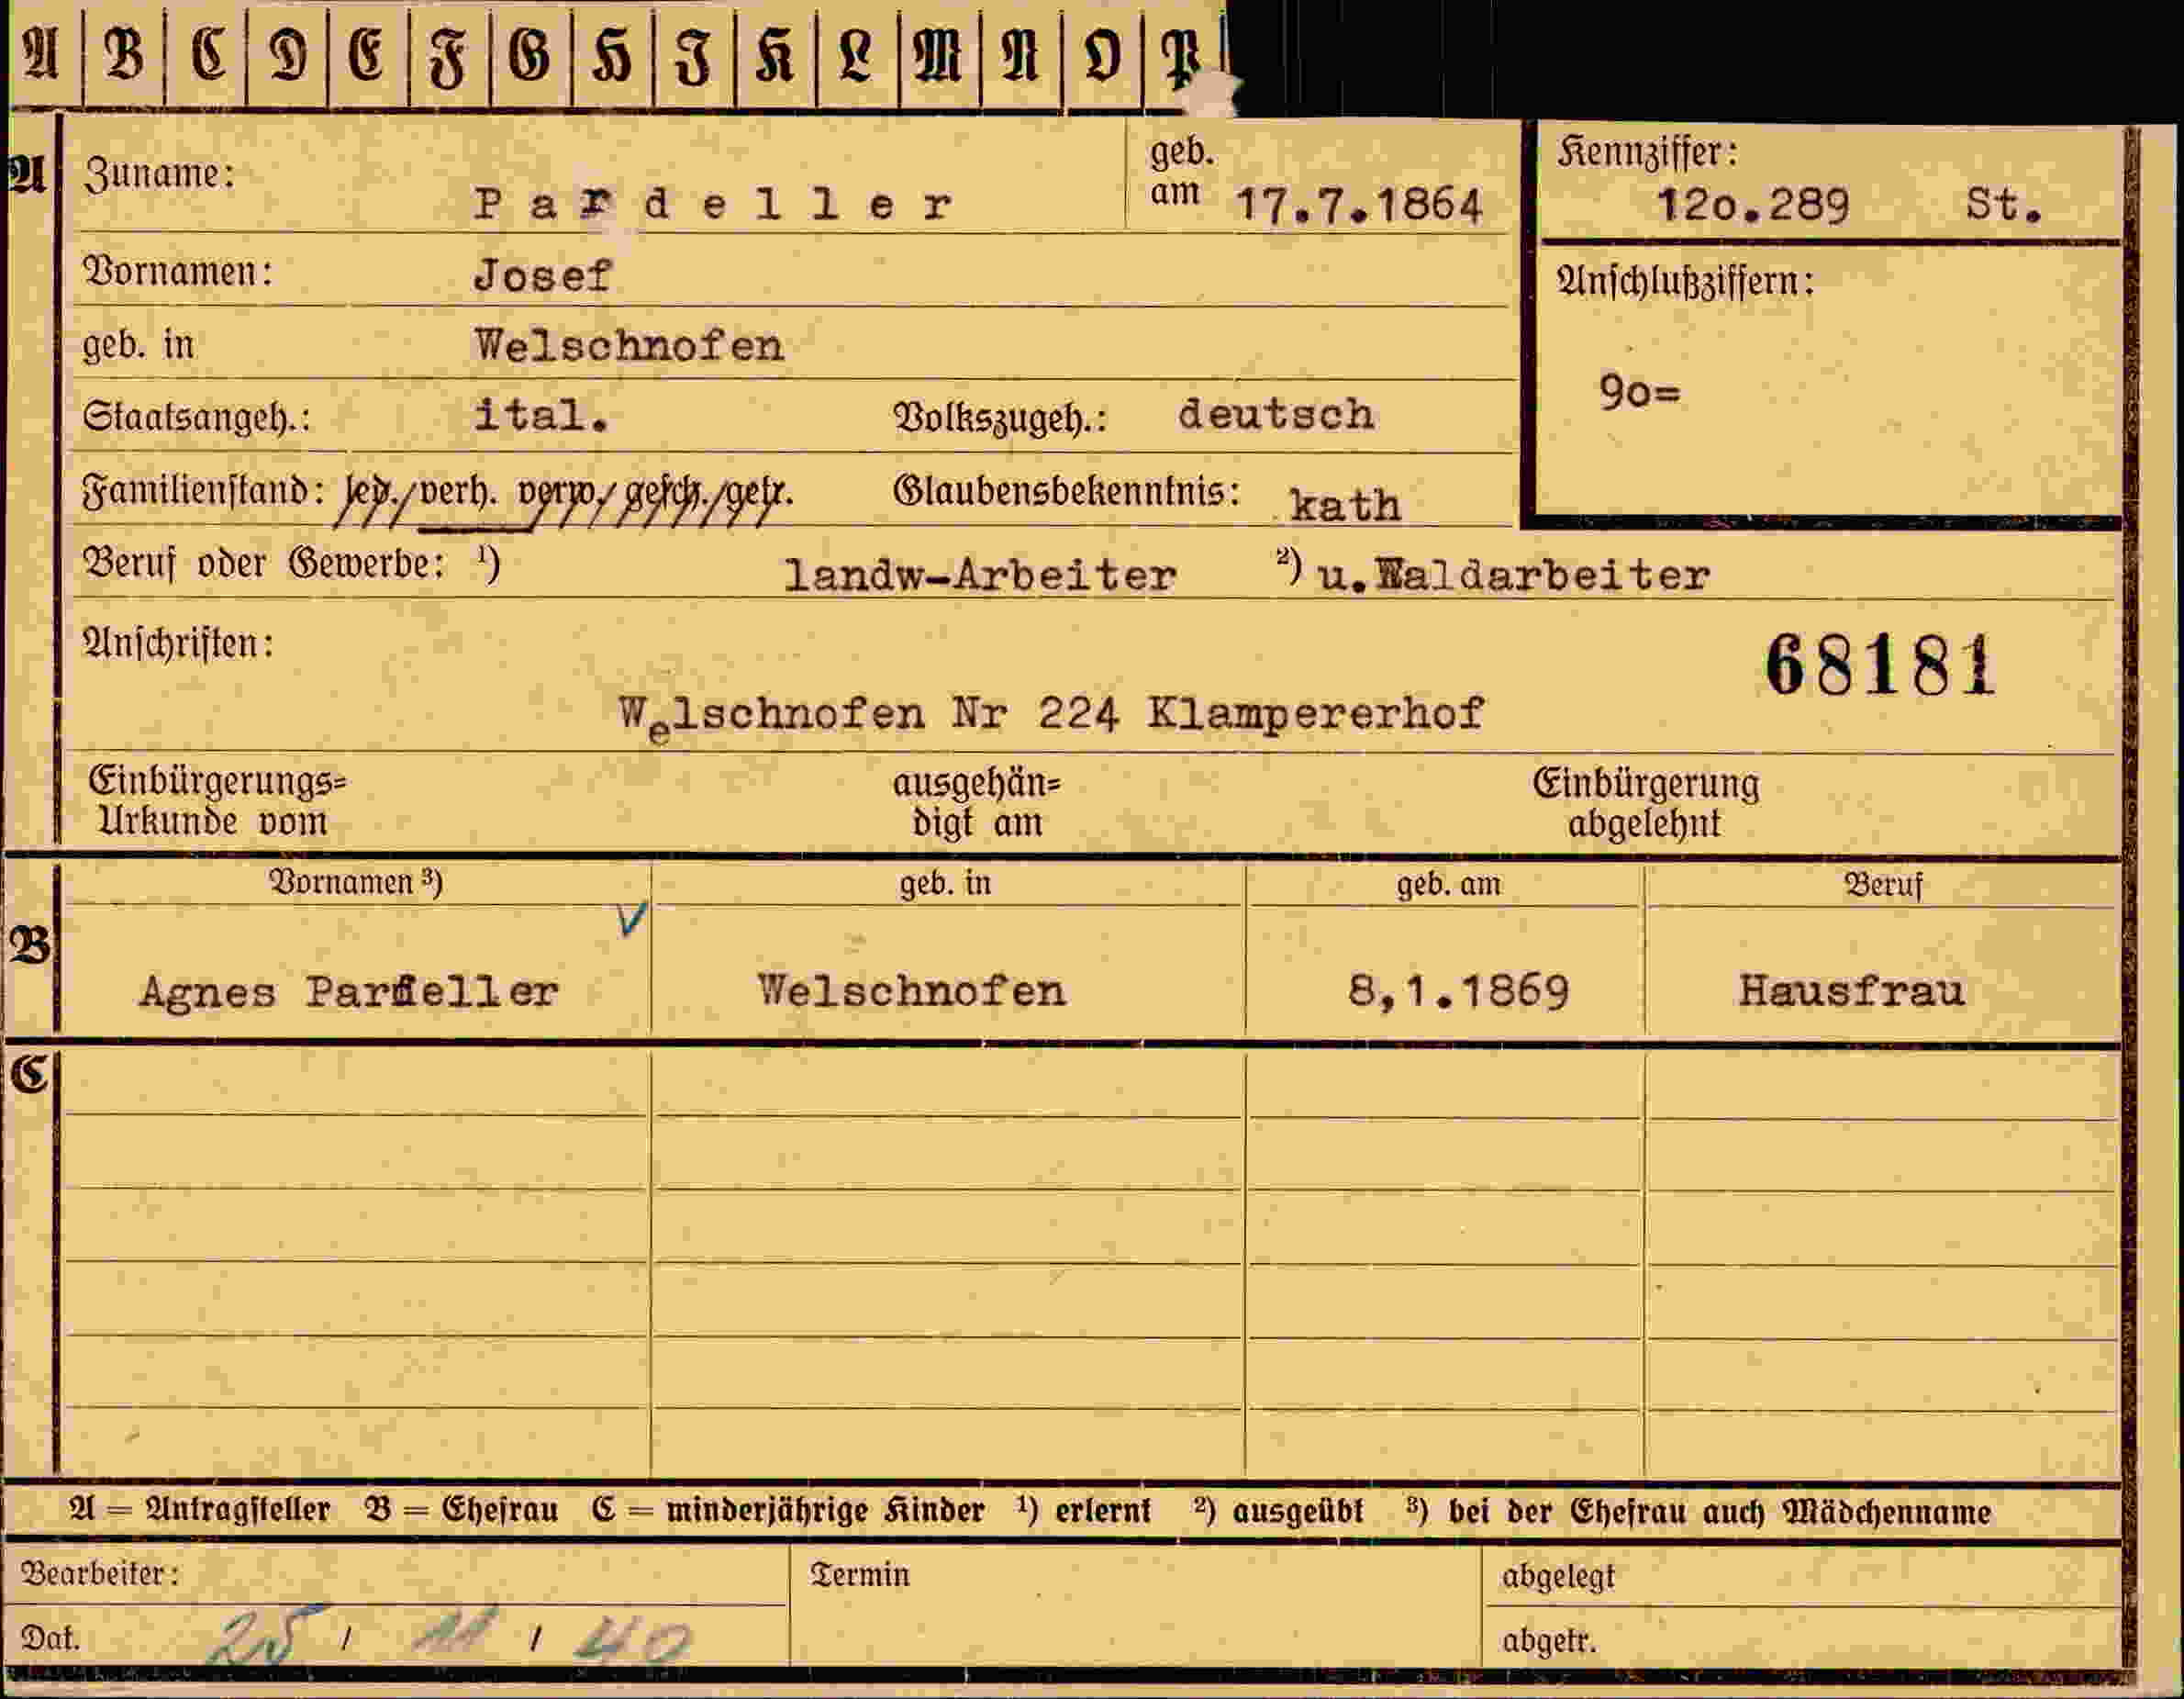 A B C D E F G H I K L M N O P
A Zuname: Pardeller geb. am 17.7.1864 Kennziffer: 12o.289 St.
Vornamen: Josef Anschlußziffern:
geb. in Welschnofen 9o=
Staatsangeh.: ital. Volkszugeh.: deutsch
Familienstand: led./verh. verw./gesch./getr. Glaubensbekenntnis: kath
Beruf oder Gewerbe: ¹) landw-Arbeiter ²) u.Waldarbeiter
Anschriften: 68181
Welschnofen Nr 224 Klampererhof
Einbürgerungs= ausgehän= Einbürgerung
Urkunde vom digt am abgelehnt
B Vornamen ³) geb. in geb. am Beruf
V
Agnes Pardeller Welschnofen 8,1.1869 Hausfrau
C
A = Antragsteller B = Ehefrau C = minderjährige Kinder ¹) erlernt ²) ausgeübt ³) bei der Ehefrau auch Mädchenname
Bearbeiter: Termin abgelegt
Dat. 25 / 11 / 40 abgetr.